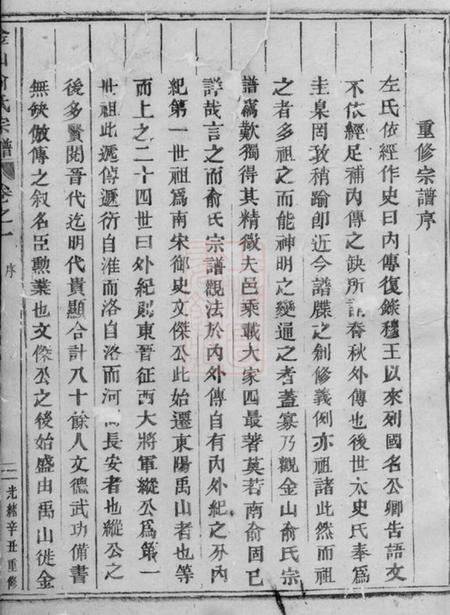 重修宗譜序
左氏依經作史曰內傳復錄穆王以來列國名公卿告語文
不依經足補內傳之缺所謂春秋外傳也後世太史氏奉為
圭臬罔敢稍踰即近今譜牒之創修義例亦祖諸此然而祖
之者多祖之而能神明之變通之者蓋寡乃觀金山俞氏宗
譜竊歎獨得其精微夫邑乘載大家四最著莫若南俞固已
譁哉言之而俞氏宗譜觀法於內外傳自有內外紀之分內
紀第一世祖為南宋御史文傑公此始遷東陽禹山者也等
而上之二十四世曰外紀則東晉征西大將軍縱公為第一
世祖此遞傳遞衍自淮而洛自洛而河間長安者也縱公之
後多賢閱晉代迄明代貴顯合計八十餘人文德武功備書
無缺倣傳之叙名臣勳業也文傑公之後始盛由禹山徙金
金山俞氏宗譜
卷之一
序
二
光緒辛丑重修